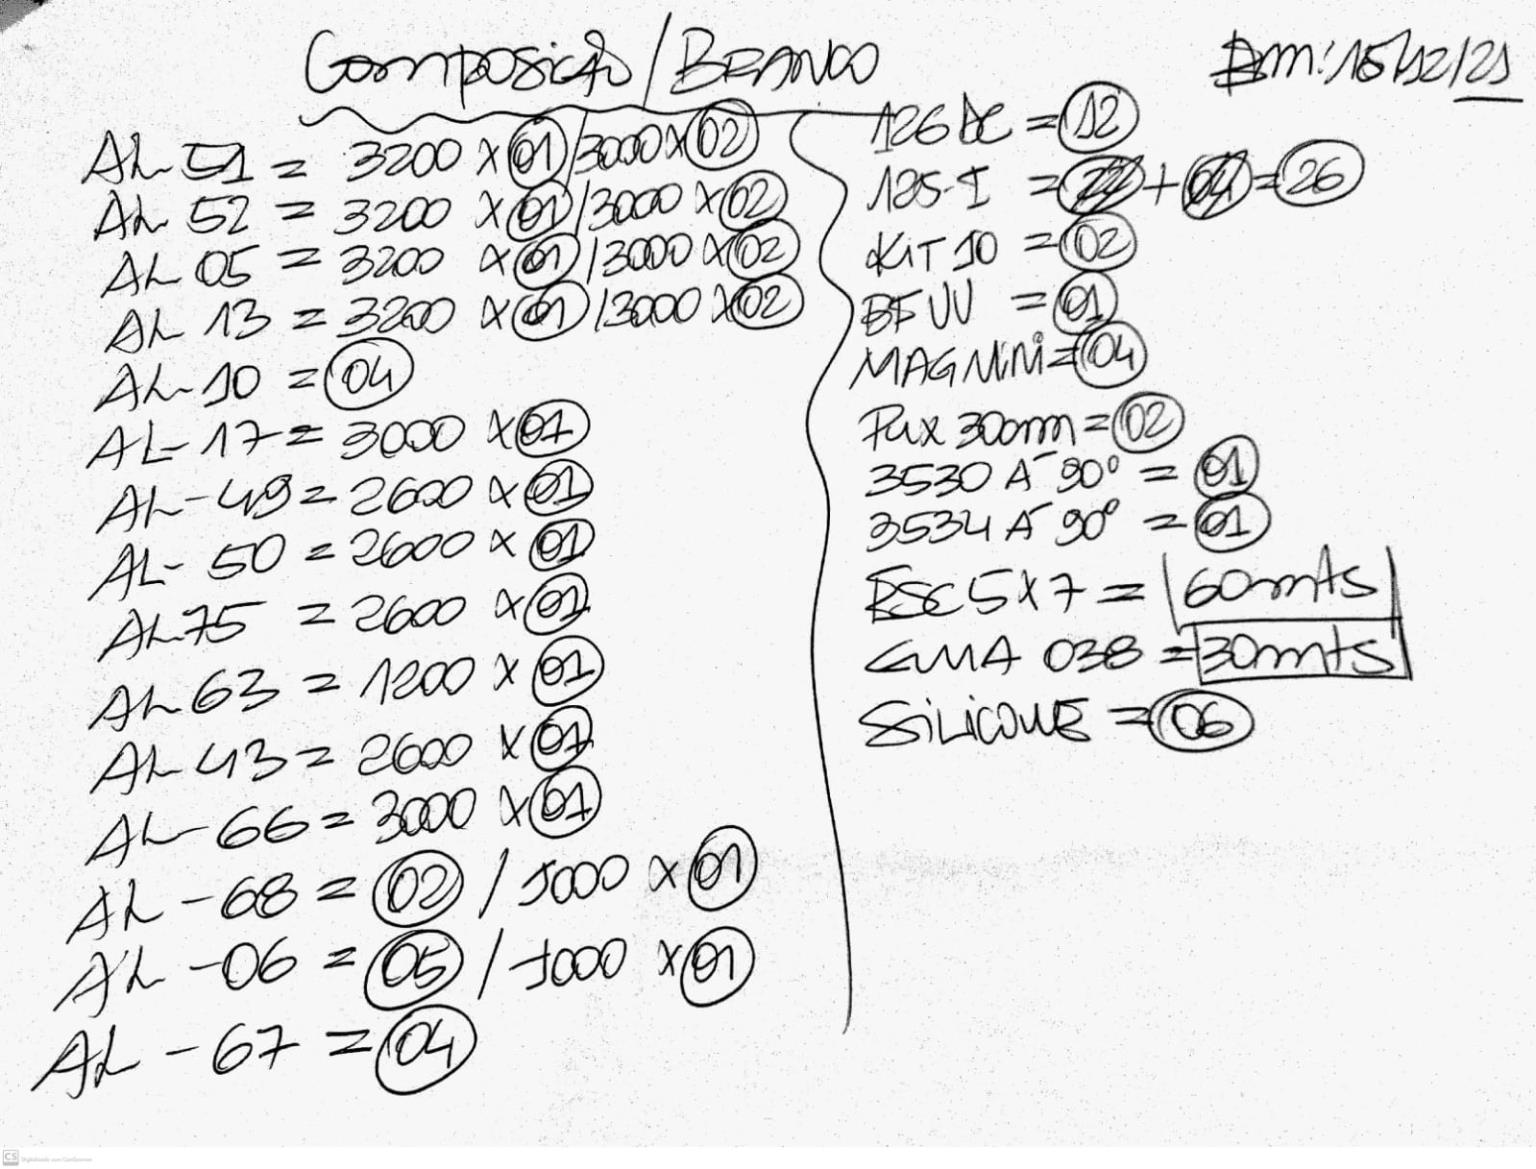 Composição/BRANCO
Em: 15/12/21
AL 51 = 3200 x 01/3000 x 02
AL 52 = 3200 x 01/3000 x 02
AL 05 = 3200 x 01/3000 x 02
AL 13 = 3200 x 01/3000 x 02
AL-10 = 04
AL-17 = 3000 x 01
AL-49 = 2600 x 01
AL-50 = 2600 x 01
AL 75 = 2600 x 01
AL 63 = 1200 x 01
AL 43 = 2600 x 01
AL-66 = 3000 x 01
AL-68 = 02 / 1000 x 01
AL-06 = 05 / 1000 x 01
AL-67 = 04
126 AC = 12
125-I = 22 + 04 = 26
KIT 10 = 02
BF UU = 01
MAGNINI = 04
Pux 30cm = 02
3530 A 90° = 01
3534 A 90° = 01
ESC 5x7 = 60mts
GUIA 038 = 30mts
SILICONE = 06